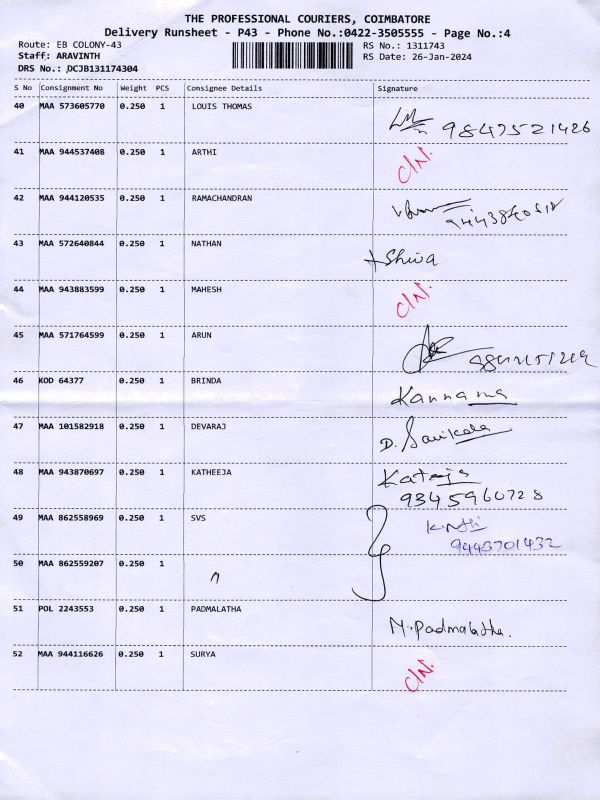 THE PROFESSIONAL COURIERS, COIMBATORE
Delivery Runsheet - P43 - Phone No.:0422-3505555 - Page No.:4
Route: EB COLONY-43 RS No.: 1311743
Staff: ARAVINTH RS Date: 26-Jan-2024
DRS No.: DCJB131174304
S No Consignment No Weight PCS Consignee Details Signature
40 MAA 573605770 0.250 1 LOUIS THOMAS
9847521426
41 MAA 944537408 0.250 1 ARTHI C/N.
42 MAA 944120535 0.250 1 RAMACHANDRAN
43 MAA 572640844 0.250 1 NATHAN Shiva
44 MAA 943883599 0.250 1 MAHESH C/N.
45 MAA 571764599 0.250 1 ARUN
46 KOD 64377 0.250 1 BRINDA Kannama
47 MAA 101582918 0.250 1 DEVARAJ D. Sasikala
48 MAA 943870697 0.250 1 KATHEEJA Kateja
9345960728
49 MAA 862558969 0.250 1 SVS
9443701432
50 MAA 862559207 0.250 1 "
51 POL 2243553 0.250 1 PADMALATHA M. Padmalatha.
52 MAA 944116626 0.250 1 SURYA C/N.